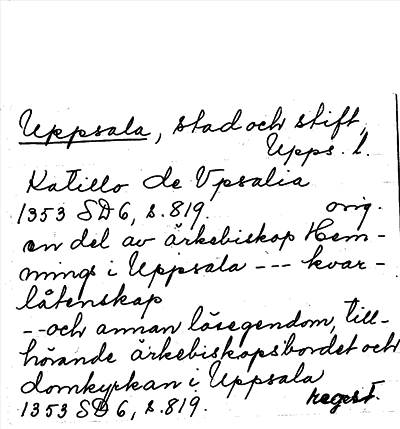 Uppsala, stad och stift,
Upps. l.
Katillo de Vpsalia
1353 SD 6, s. 819. orig.
en del av ärkebiskop Hem-
mings i Uppsala --- kvar-
låtenskap
--och annan lösegendom, till-
hörande ärkebiskopsbordet och
domkyrkan i Uppsala
1353 SD 6, s. 819. regest.